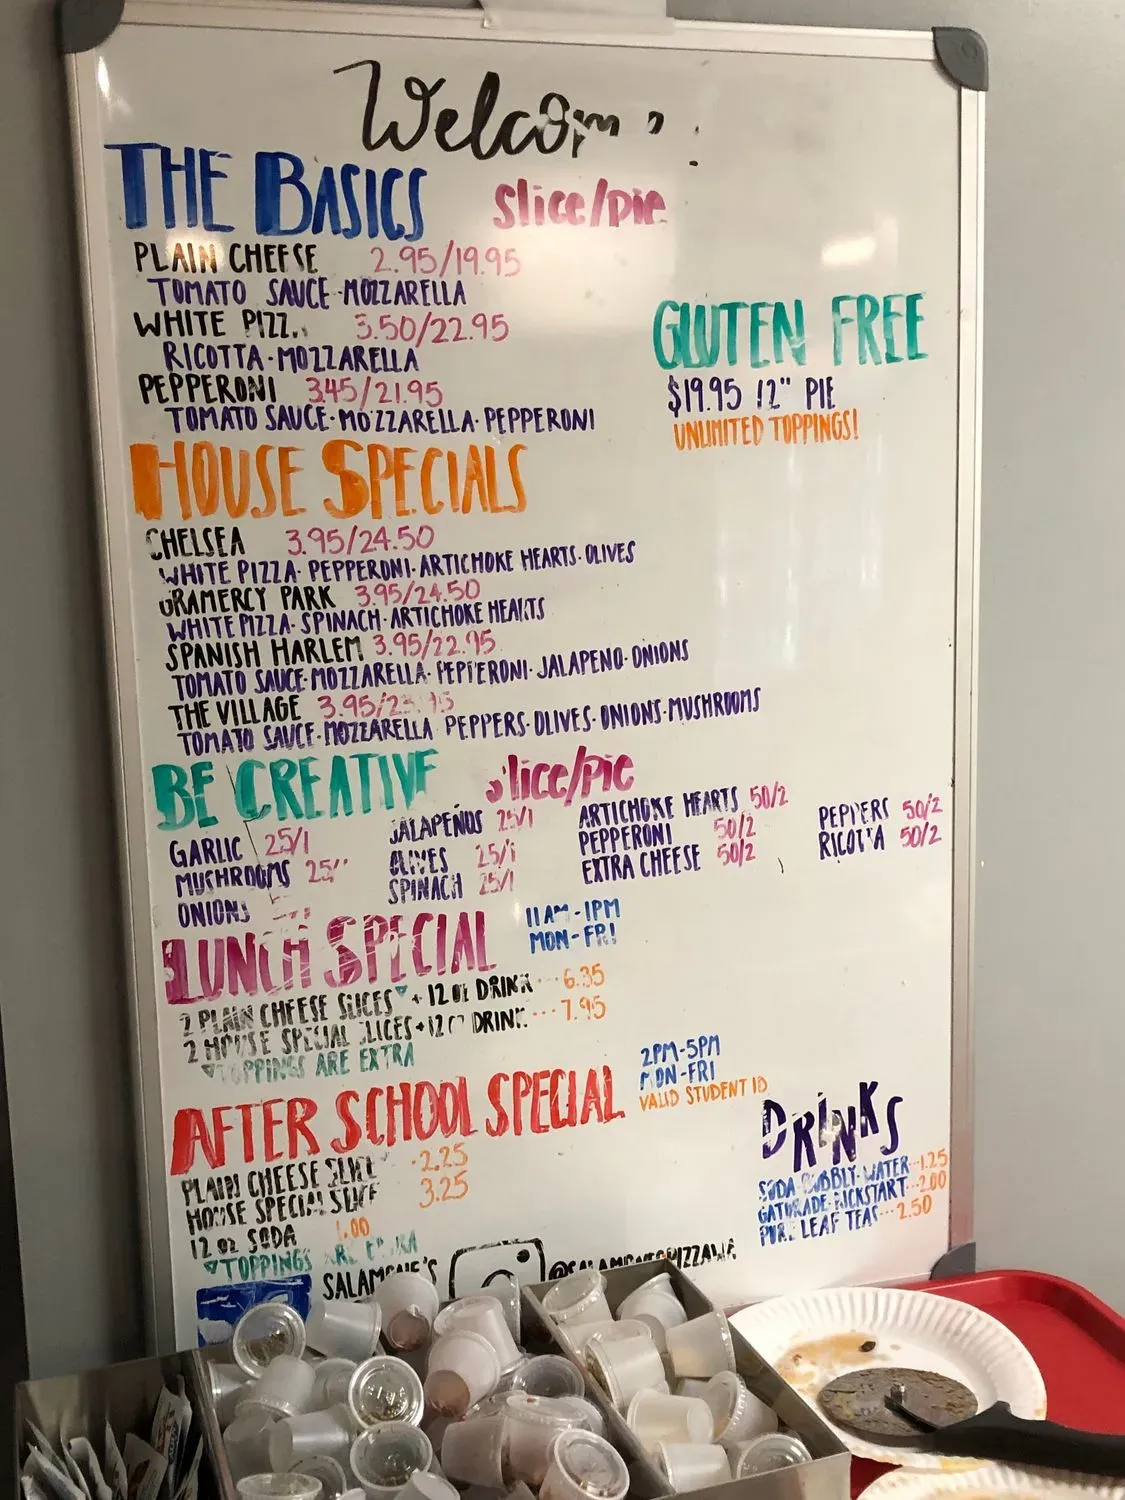 Welcom
THE BASICS slice/pie
PLAIN CHEESE 2.95/19.95
TOMATO SAUCE-MOZZARELLA
WHITE PIZZ 3.50/22.95
RICOTTA-MOZZARELLA
PEPPERONI 3.45/21.95
TOMATO SAUCE-MOZZARELLA-PEPPERONI
GLUTEN FREE
$19.95 12" PIE
UNLIMITED TOPPINGS!
HOUSE SPECIALS
CHELSEA 3.95/24.50
WHITE PIZZA-PEPPERONI-ARTICHOKE HEARTS-OLIVES
GRAMERCY PARK 3.95/24.50
WHITE PIZZA-SPINACH-ARTICHOKE HEARTS
SPANISH HARLEM 3.95/22.95
TOMATO SAUCE-MOZZARELLA-PEPPERONI-JALAPENO-ONIONS
THE VILLAGE
TOMATO SAUCE-MOZZARELLA PEPPERS-OLIVES-ONIONS-MUSHROOMS
BE CREATIVE slice/pie
GARLIC 25/1
MUSHROOMS
ONIONS
JALAPEÑOS 25/1
OLIVES 25/1
SPINACH 25/1
ARTICHOKE HEARTS 50/2
PEPPERONI 50/2
EXTRA CHEESE 50/2
PEPPERS 50/2
RICOTTA 50/2
LUNCH SPECIAL
11AM-1PM
MON-FRI
2 PLAIN CHEESE SLICES + 12 oz DRINK ... 6.35
2 HOUSE SPECIAL SLICES + 12 oz DRINK ... 7.95
TOPPINGS ARE EXTRA
AFTER SCHOOL SPECIAL
2PM-5PM
MON-FRI
VALID STUDENT ID
PLAIN CHEESE SLICE 2.25
HOUSE SPECIAL SLICE 3.25
12 oz SODA 1.00
TOPPINGS ARE EXTRA
DRINKS
SODA-BUBBLY-WATER...1.25
GATORADE-KICKSTART...2.00
PURE LEAF TEAS...2.50
SALAMONE'S